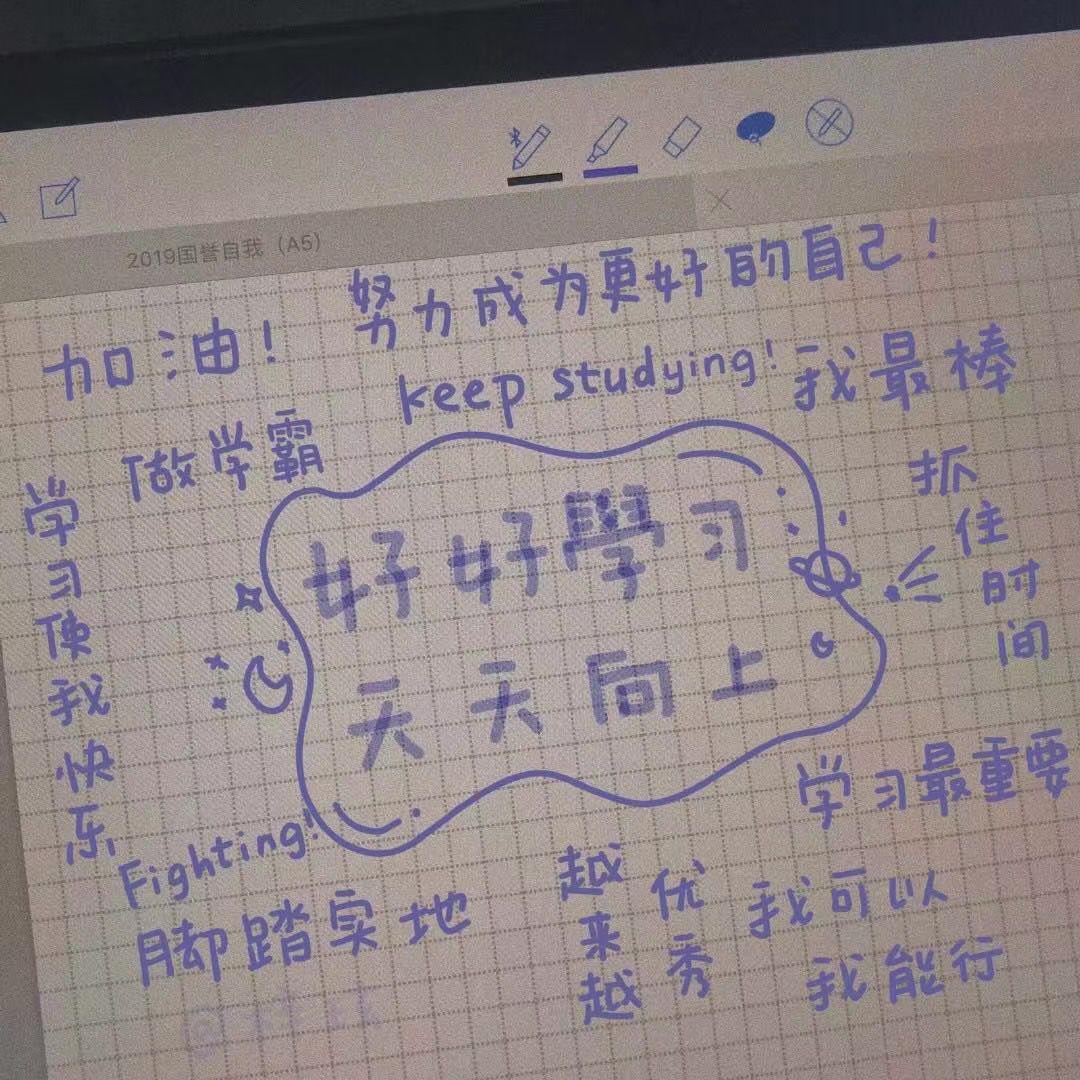 2019国誉自我（A5）
加油！
努力成为更好的自己！
keep studying!
我最棒
做学霸
学习使我快乐
抓住时间
好好學习
天天向上
学习最重要
Fighting!
脚踏实地
越来越优秀
我可以
我能行